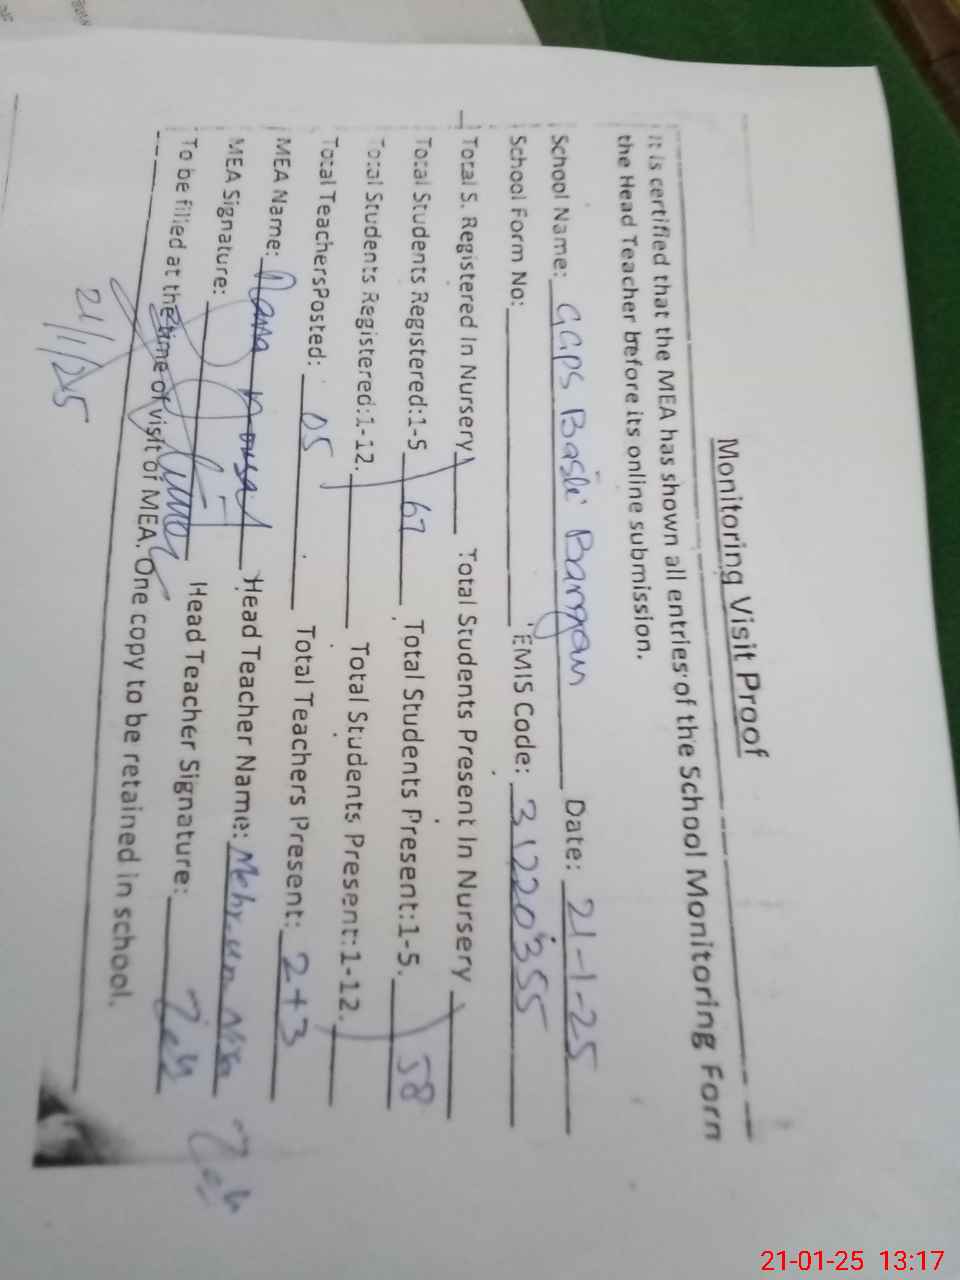 Monitoring Visit Proof
It is certified that the MEA has shown all entries of the School Monitoring Form
the Head Teacher before its online submission.
School Name: GGPS Basti Bangan Date: 21-1-25
School Form No: EMIS Code: 31220355
Total S. Registered In Nursery Total Students Present In Nursery
Total Students Registered:1-5 67 Total Students Present:1-5. 58
Total Students Registered:1-12. Total Students Present:1-12.
Total TeachersPosted: 05 Total Teachers Present: 2+3
MEA Name: Head Teacher Name: Mehr-un-Nisa
MEA Signature: Head Teacher Signature:
To be filled at the time of visit of MEA. One copy to be retained in school.
21/1/25
21-01-25 13:17